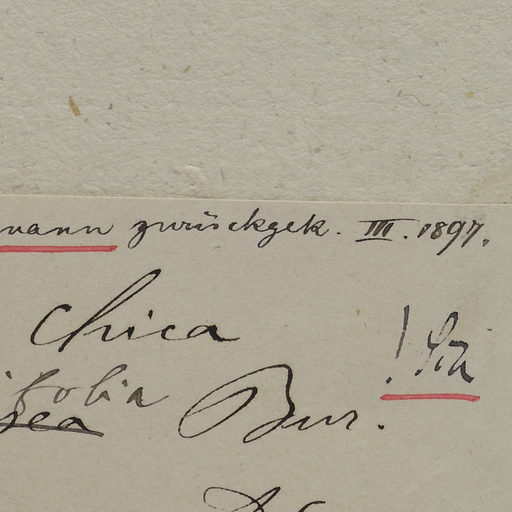 mann zurückgek. III. 1897.
Chica
ifolia
Bur.